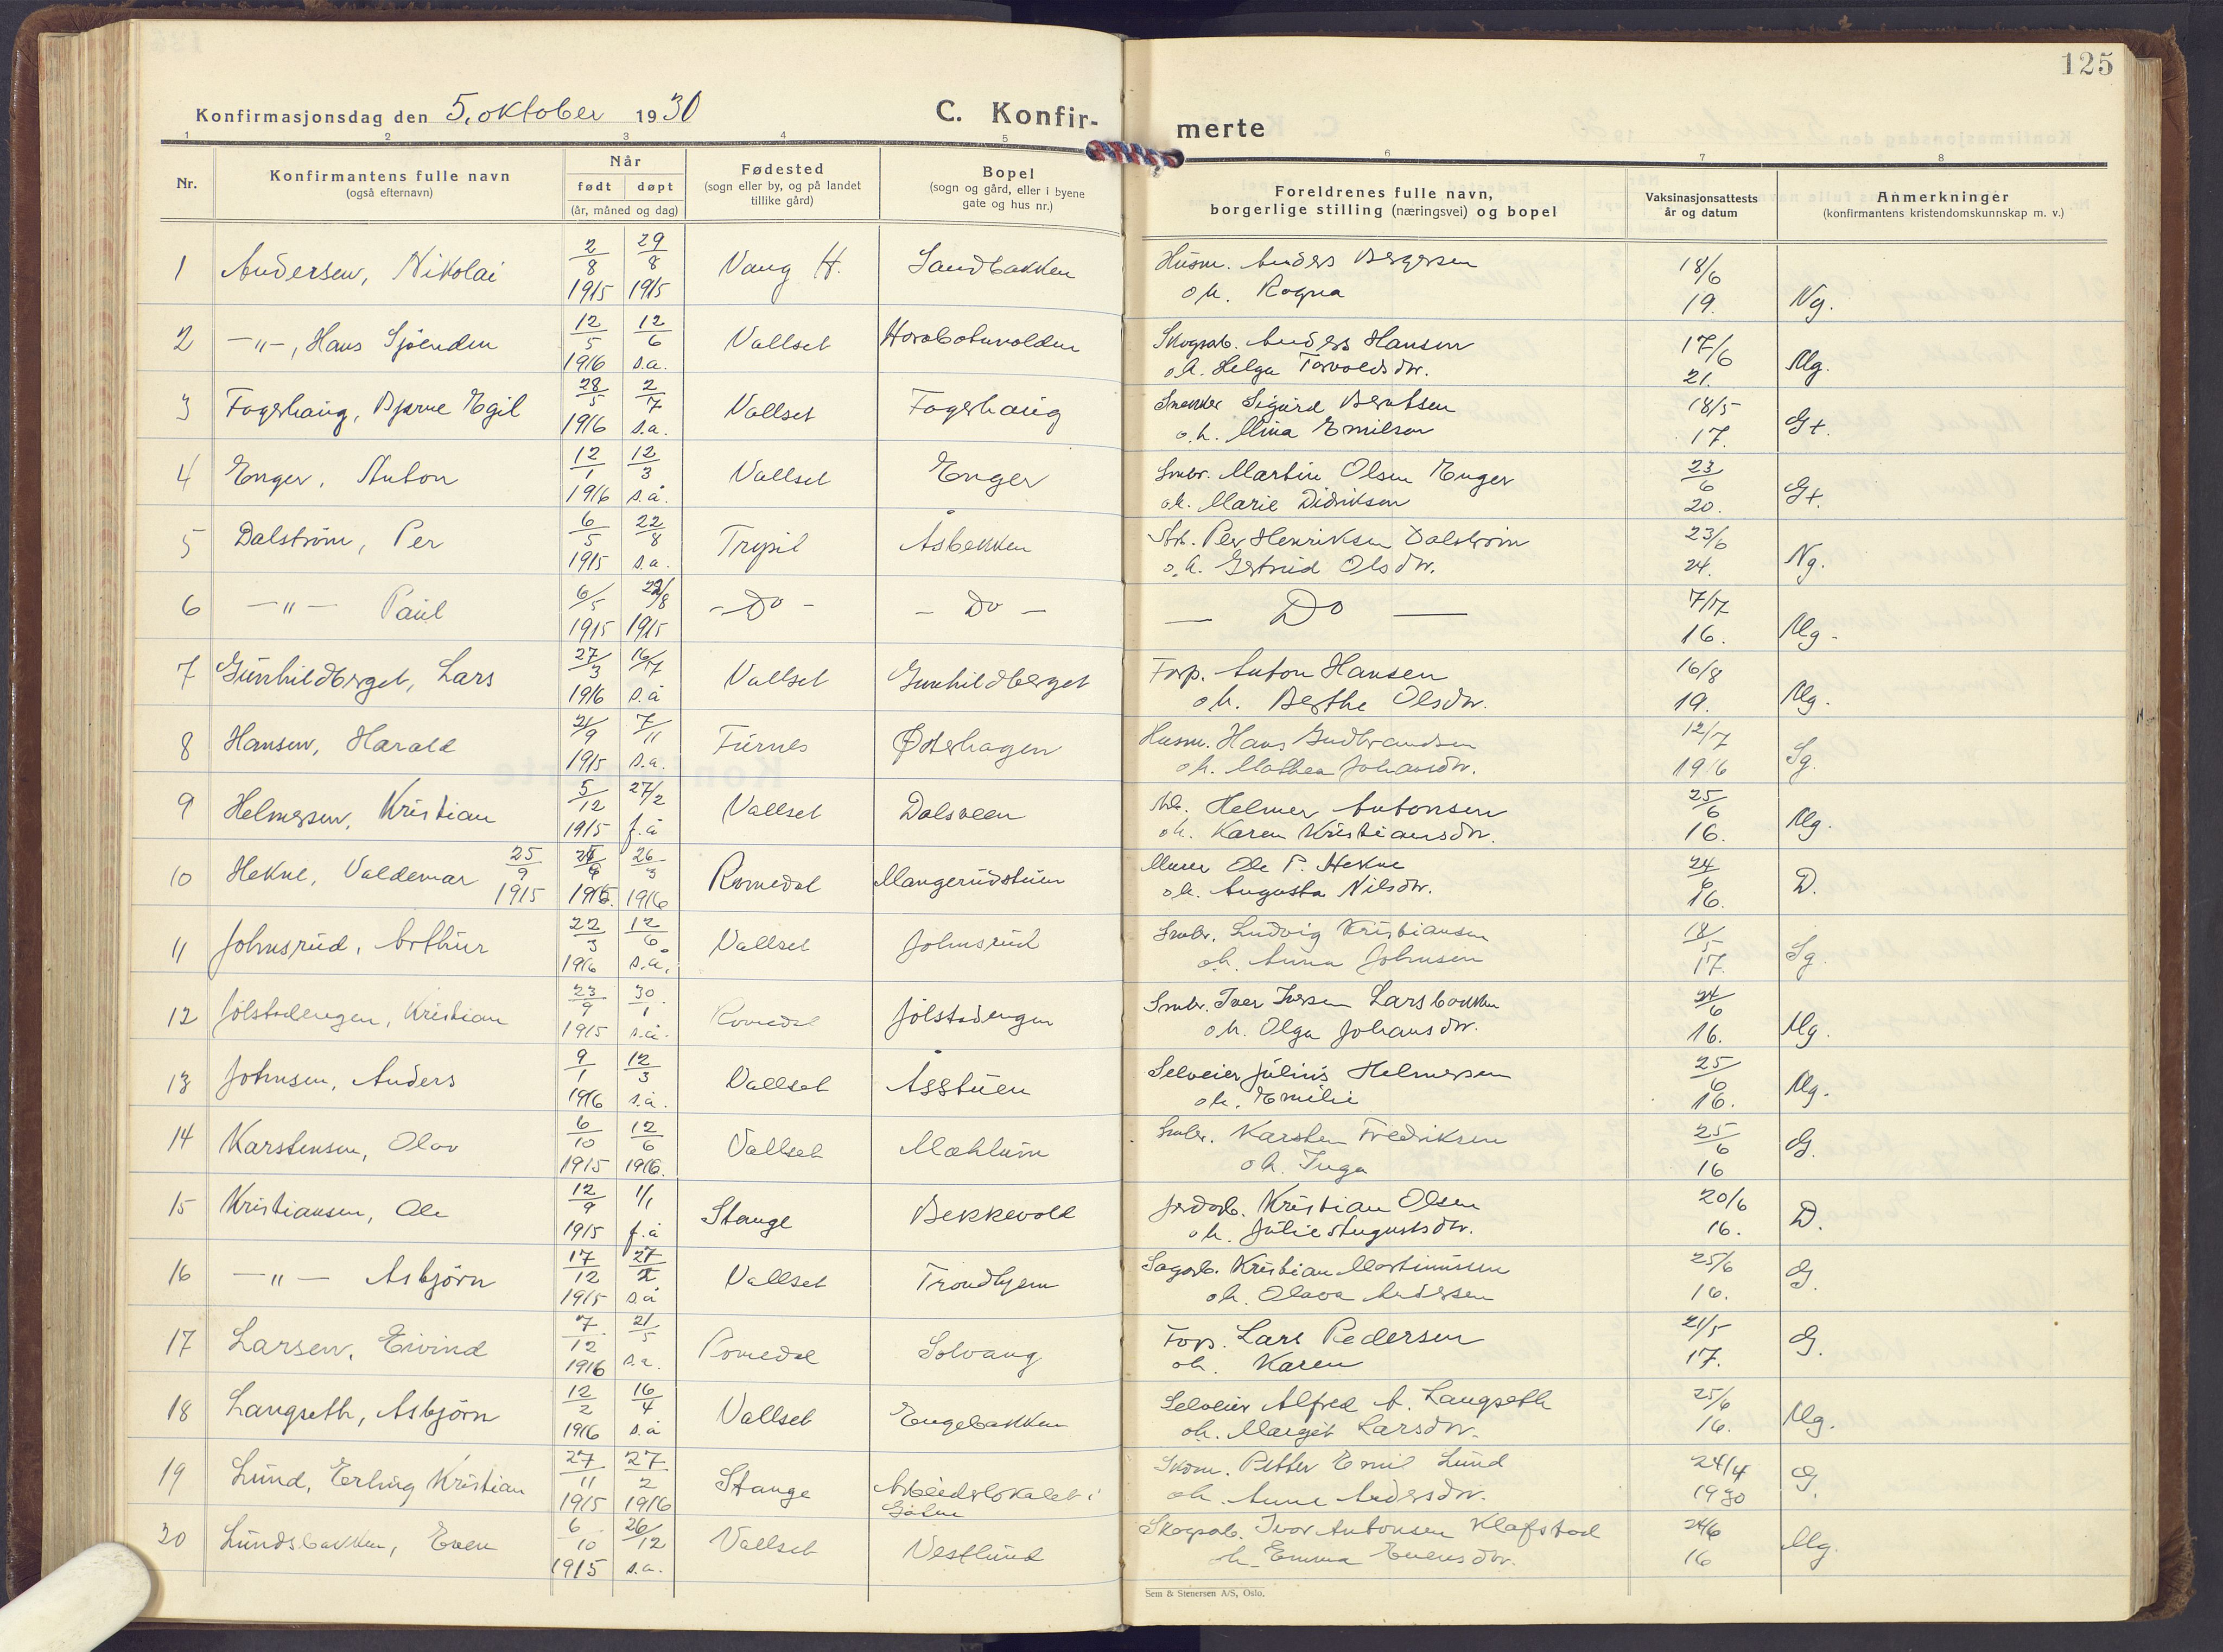 125
Konfirmasjonsdag den 5. oktober 1930
C. Konfir-
merte
1 2 3 4 5 6 7 8
Nr.
Konfirmantens fulle navn
(også efternavn)
Når
født døpt
(år, måned og dag)
Fødested
(sogn eller by, og på landet
tillike gård)
Bopel
(sogn og gård, eller i byene
gate og hus nr.)
Foreldrenes fulle navn,
borgerlige stilling (næringsvei) og bopel
Vaksinasjonsattests
år og datum
Anmerkninger
(konfirmantens kristendomskunnskap m. v.)
1 Andersen, Nikolai 2/8 1915 29/8 1915 Vang H. Sandbakken Husm. Anders Bergersen 18/6
o h. Ragna 19. Ng.
2 —"—, Hans Sjøenden 12/5 1916 12/6 s.a. Vallset Skogsarb. Anders Hansen 17/6
o.h. Helga Torvaldsdtr. 21. Mg.
3 Fagerhaug, Bjarne Egil 28/5 1916 2/7 s.a. Vallset Fagerhaug Snekker Sigurd Berntsen 18/5
o.h. Mina Emilsen 17. G+.
4 Enger, Anton 12/1 1916 12/3 s.å. Vallset Enger Smbr. Martin Olsen Enger 23/6
oh. Marie Didriksen 20. G+.
5 Dalstrøm, Per 6/5 1915 22/8 s.a. Trysil Åsbekken Arb. Per Henriksen Dalstrøm 23/6
o.h. Gertrud Olsdtr. 24. Ng.
6 —"— Paul 6/5 1915 22/8 1915 - Do - — Do — — Do — 7/17
16. Mg.
7 Gunhildberget, Lars 27/3 1916 16/7 s.å Vallset Gunhildberget Forp. Anton Hansen 16/8
o h. Berthe Olsdtr. 19. Mg.
8 Hansen, Harald 21/9 1915 7/11 s.a. Furnes Østerhagen Husm. Hans Gudbrandsen 12/7
o h. Mathea Johansdtr. 1916 Sg.
9 Helmersen, Kristian 5/12 1915 27/2 f.å Vallset Dalsveen Arb. Helmer Antonsen 25/6
oh. Karen Kristiansdtr. 16. Mg.
10 Hekne, Valdemar 25/9 1915 26/3 1916 Romedal Mangerudstuen Murer Ole P. Hekne 24/6
oh. Augusta Nilsdtr. 16. D.
11 Johnsrud, Arthur 22/3 1916 12/6 s.å. Vallset Johnsrud Smbr. Ludvig Kristiansen 18/5
oh. Anna Johnsen 17. Sg.
12 Jølstadengen, Kristian 23/9 1915 30/1 s.å. Romedal Jølstadengen Smbr. Iver Iversen Larsbakken 24/6
o h. Olga Johansdtr. 16. Mg.
13 Johnsen, Anders 9/1 1916 12/3 s.å. Vallset Åsstuen Selveier Julius Helmersen 25/6
oh. Emilie 16. Mg.
14 Karstensen, Olav 6/10 1915 12/6 1916. Vallset Mæhlum Smbr. Karsten Fredriksen 25/6
o h. Inga 16 G.
15 Kristiansen, Ole 12/9 1915 1/1 f.å Stange Bekkevold Jordarb. Kristian Olsen 20/6
o h. Julie Augustsdtr. 16. D.
16 —"— Asbjørn 17/12 1915 27/2 s.å Vallset Trondhjem Sagarb. Kristian Martinusen 25/6
oh. Olava Andersen 16. G.
17 Larsen, Eivind 7/12 1916 21/5 s.a. Romedal Solvang Forp. Lars Pedersen 21/5
oh. Karen 17. G.
18 Langseth, Asbjørn 12/2 1916 16/4 s.å Vallset Engebakken Selveier Alfred A. Langseth 25/6
oh. Margit Larsdtr. 16. Mg.
19 Lund, Erling Kristian 27/11 1915 27/2 1916 Stange Arbeiderlokalet i Skom. Petter Emil Lund 24/4
oh. Anne Andersdtr. 1930 G.
20 Lundsbakken, Even 6/10 1915 26/12 s.a. Vallset Vestlund Skogsarb. Ivar Antonsen Klafstad 24/6
oh. Emma Evensdtr. 16 Mg.
Sem & Stenersen A/S, Oslo.